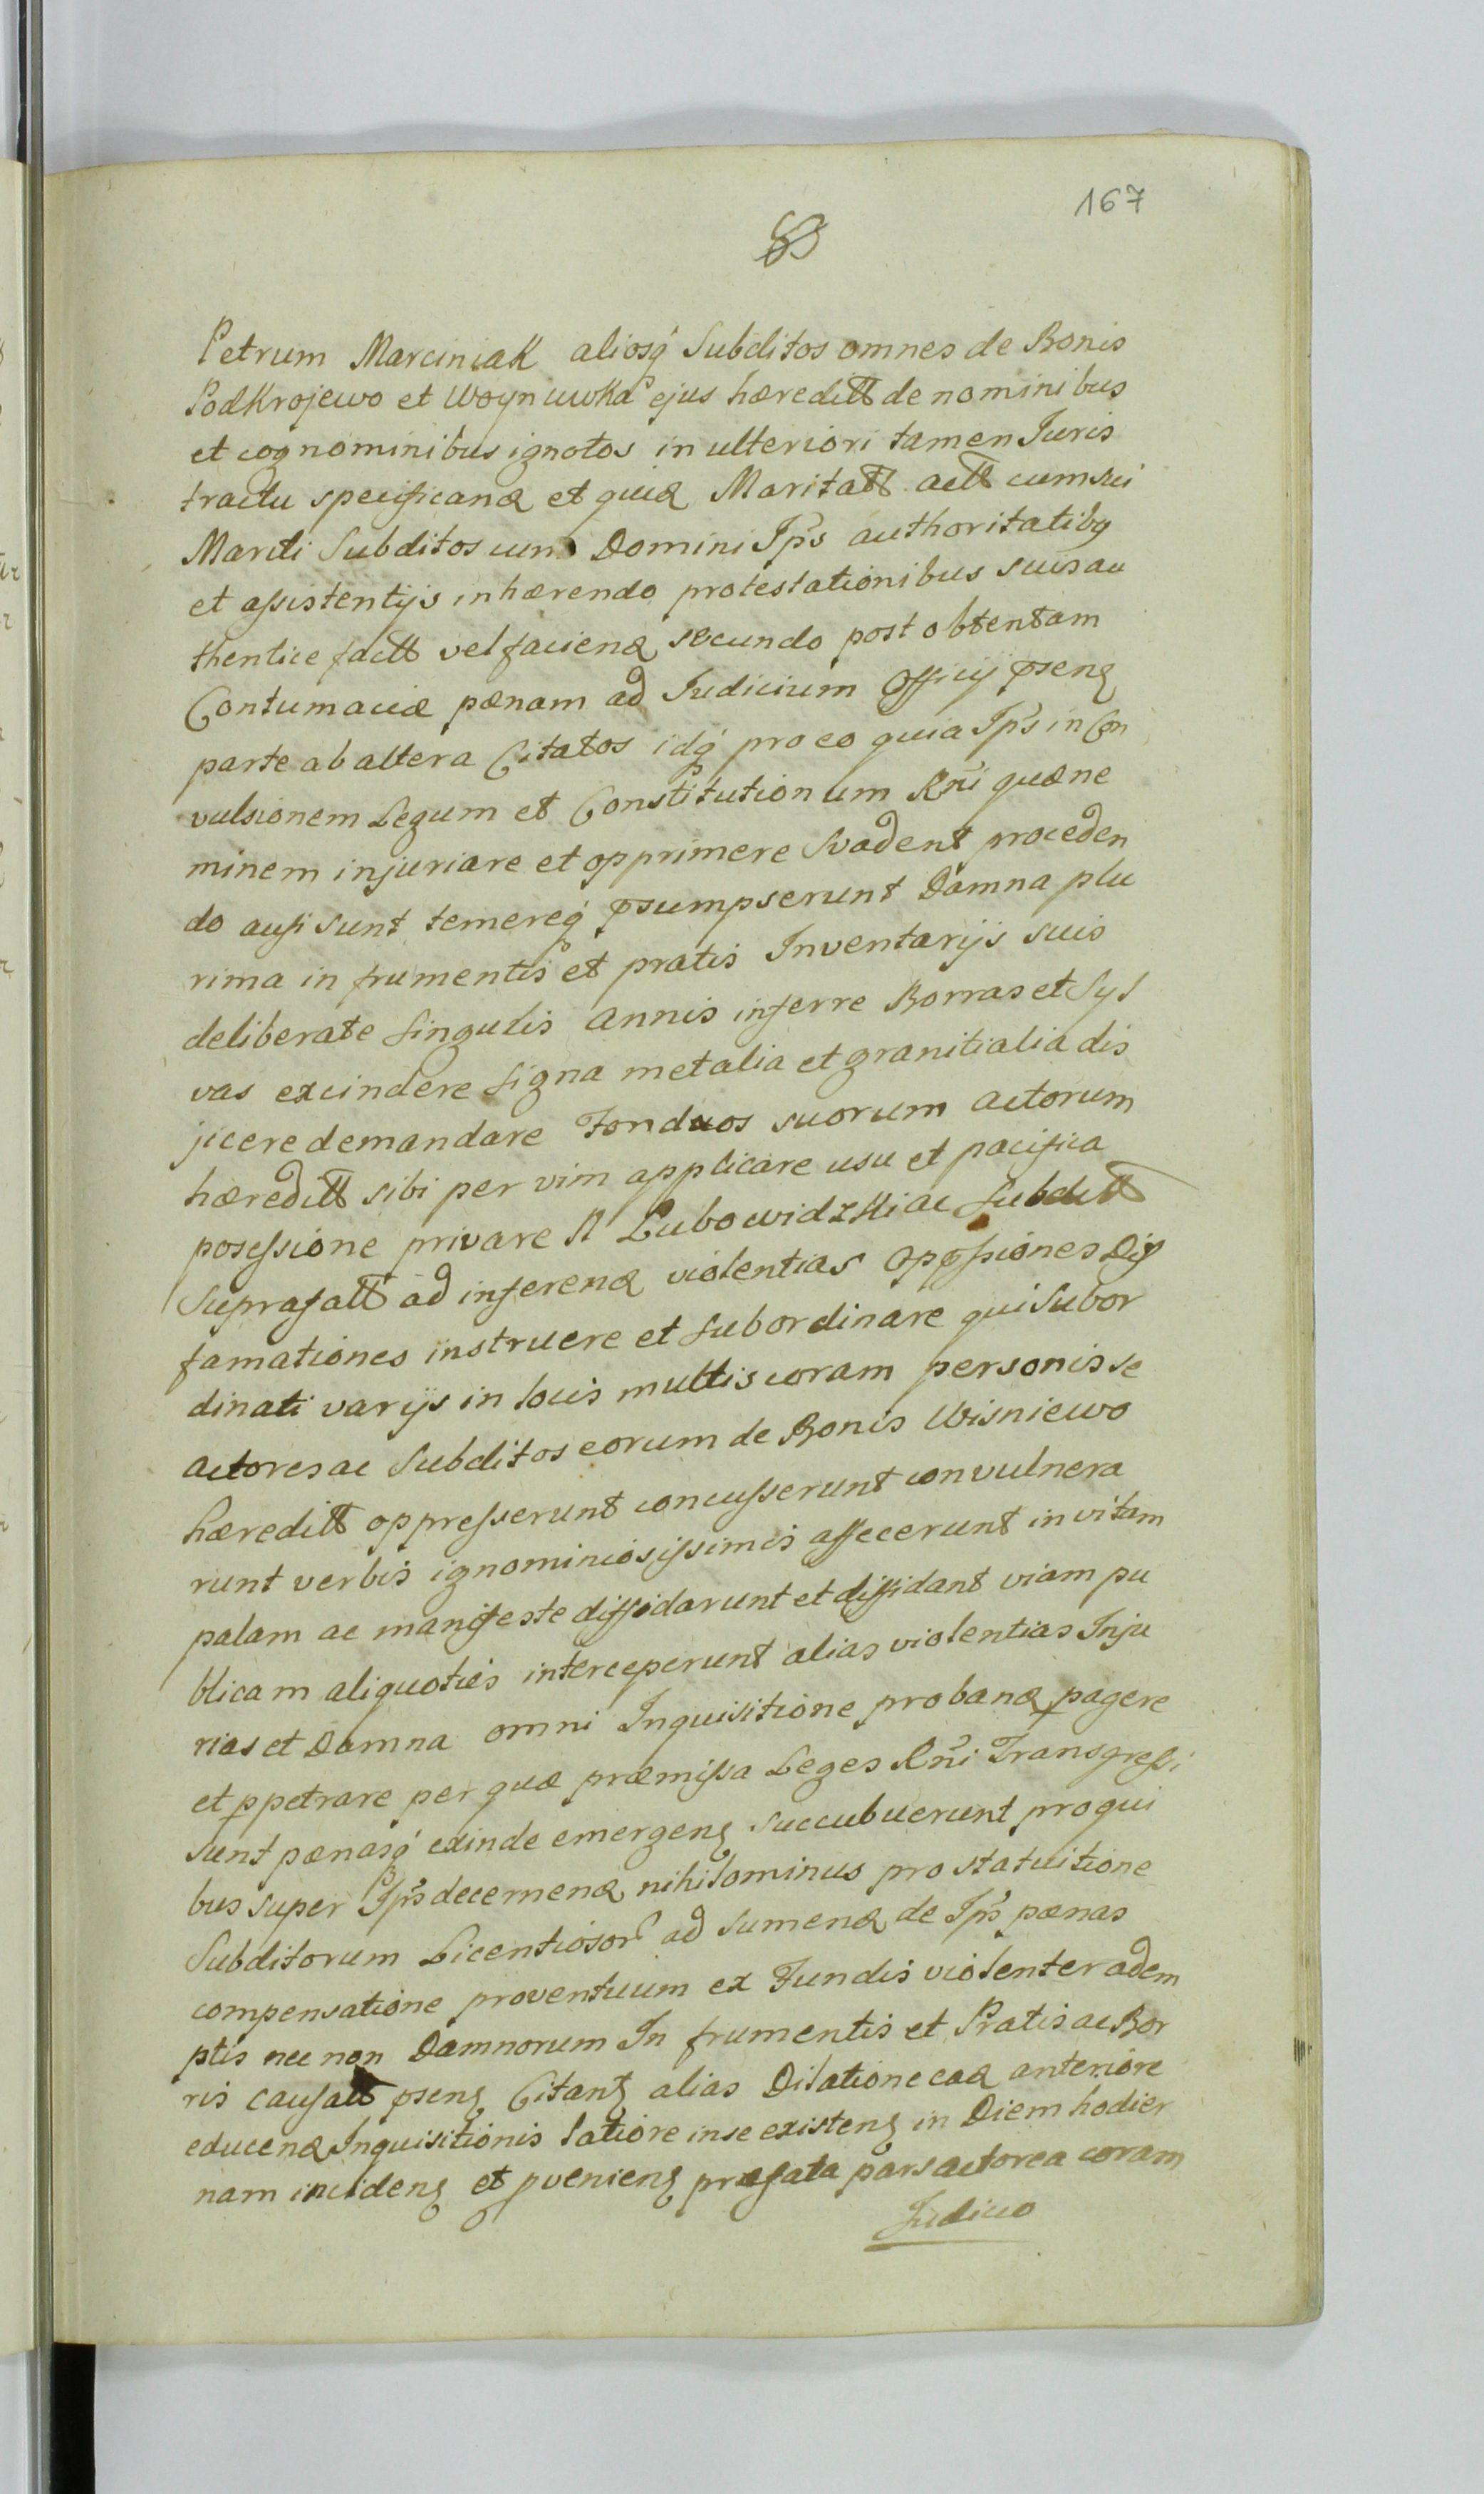 167
Petrum Marciniak aliosq́ Subditos omnes de Bonis
Podkrojewo et Woynuwka ejus hæreditt de nominibus
et cognominibus ignotos in ulteriori tamen Juris
tractu specificand et quid Maritatt actt cum sui
Mariti Subditos cum Domini Ips authoritatibq
et assistentijs inhærendo protestationibus suis au
thentice factt vel faciend secundo post obtentam
Contumaciæ pænam ad Judicium Officij pseng
parte ab altera Citatos idq́ pro eo quia Ips in Con
vulsionem Legum et Constitutionum Rni quæ ne
minem injuriare et opprimere Svadent proceden
do ausi sunt temereq́ psumpserunt Damna plu
rima in frumentis et pratis Inventarijs suis
deliberate singulis annis inferre Borras et Syl
vas excindere signa metalia et granitialia dis
jicere demandare Fonduos suorum actorum
hæreditt sibi per vim applicare usu et pacifica
posessione privare A Lubowidzki ac Subditt
Suprafatt ad inferend violentias oppssiones Dif
famationes instruere et subordinare qui Subor
dinati varijs in locis multis coram personis se
actores ac Subditos eorum de Bonis Wisniewo
hæreditt oppresserunt concusserunt convulnera
runt verbis ignominiosissimis affecerunt in vitam
palam ac manifeste diffidarunt et diffidant viam pu
blicam aliquoties interceperunt alias violentias Inju
rias et Damna omni Inquisitione proband pagere
et ppetrare per quæ præmissa Leges Rni Transgressi
sunt pænasq́ exinde emergeng succubuerunt pro qui
bus super Ips decernend nihilominus pro statuitione
Subditorum Licentiosor ad sumend de Ips pænas
compensatione proventuum ex Fundis violenter adem
ptis nec non Damnorum In frumentis et Pratis ac Bor
ris causatt pseng Citantg alias Dilatione ead anteriore
educend Inquisitionis latiore in se existeng in Diem hodier
nam incideng et pvenieng præfata pars actorea coram
Judicio